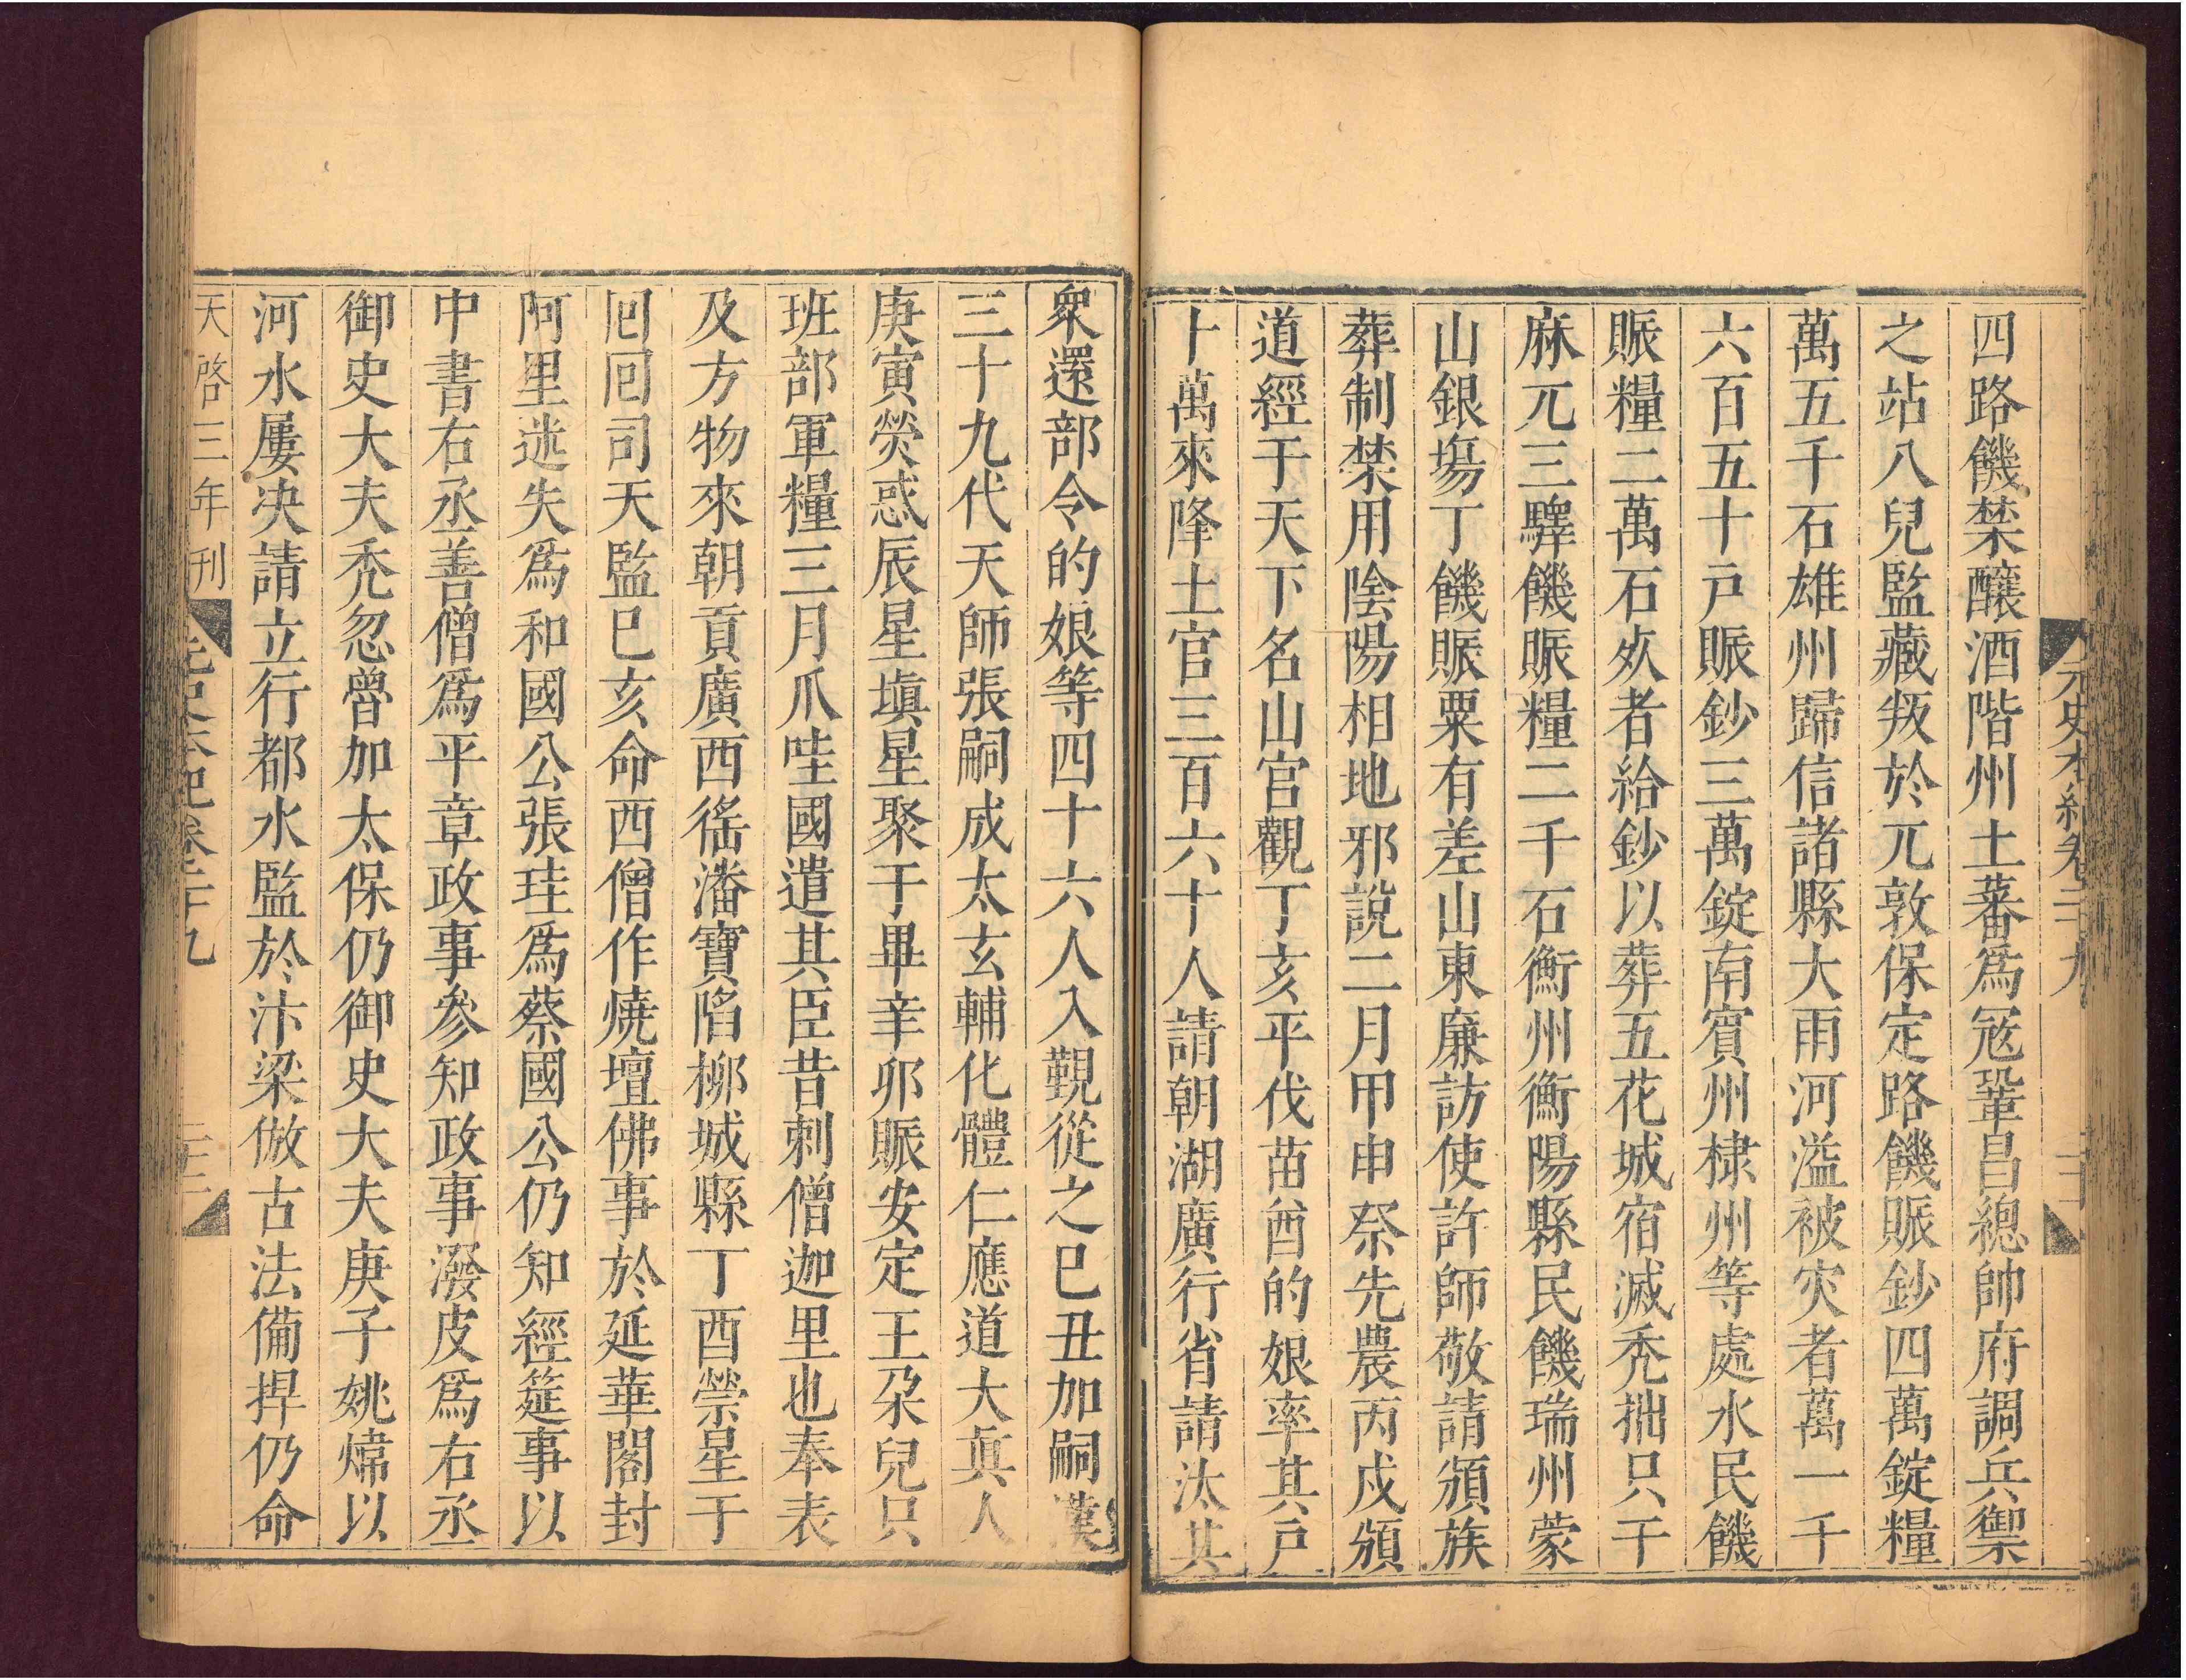 元史本紀卷二十九
四路饑禁釀酒階州土蕃爲冦鞏昌總帥府調兵禦
之站八兒監藏叛於兀敦保定路饑賑鈔四萬錠糧
萬五千石雄州歸信諸縣大雨河溢被灾者萬一千
六百五十戸賑鈔三萬錠南賓州棣州等處水民饑
賑糧二萬石死者給鈔以葬五花城宿滅秃拙只干
麻兀三驛饑賑糧二千石衡州衡陽縣民饑瑞州蒙
山銀塲丁饑賑粟有差山東廉訪使許師敬請頒族
葬制禁用陰陽相地邪說二月甲申祭先農丙戍頒
道經于天下名山宮觀丁亥平伐苗酋的娘率其戸
十萬來降土官三百六十人請朝湖廣行省請汰其
衆還部令的娘等四十六人入覲從之巳丑加嗣漢
三十九代天師張嗣成太玄輔化體仁應道大眞人
庚寅熒惑辰星塡星聚于畢辛卯賑安定王朶兒只
班部軍糧三月爪哇國遣其臣昔刺僧迦里也奉表
及方物來朝貢廣西徭潘寶陷柳城縣丁酉熒星于
囘囘司天監巳亥命西僧作燒壇佛事於延華閣封
阿里迷失爲和國公張珪爲蔡國公仍知經筵事以
中書右丞善僧爲平章政事參知政事潑皮爲右丞
御史大夫秃忽魯加太保仍御史大夫庚子姚煒以
河水屢决請立行都水監於汴梁倣古法備捍仍命
天啓三年刊
元史本紀卷二十九